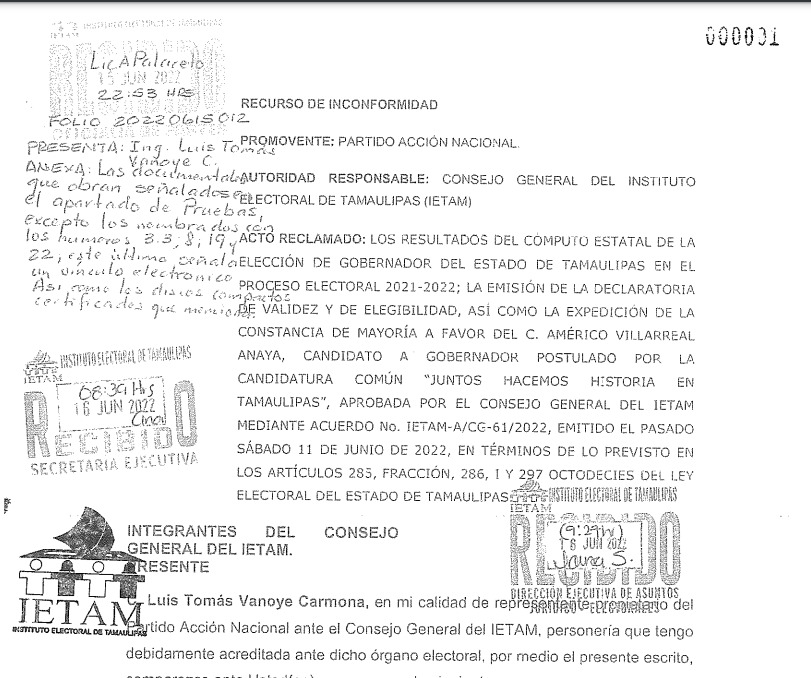 000031
INSTITUTO ELECTORAL DE TAMAULIPAS
IETAM
RECIBIDO
Lic A Palacelo
15 JUN 2022
22:53 HRS
FOLIO 20220615012
OFICIALIA DE PARTES
PRESENTA: Ing. Luis Tomás
Vanoye C.
ANEXA: Las documentales
que obran señalados en
el apartado de Pruebas,
excepto los nombrados con
los numeros 3.3, 8, 19 y
22, este último señala
un vinculo electronico
Así como los discos compactos
certificados que menciona.
RECURSO DE INCONFORMIDAD
PROMOVENTE: PARTIDO ACCIÓN NACIONAL.
AUTORIDAD RESPONSABLE: CONSEJO GENERAL DEL INSTITUTO
ELECTORAL DE TAMAULIPAS (IETAM)
ACTO RECLAMADO: LOS RESULTADOS DEL CÓMPUTO ESTATAL DE LA
ELECCIÓN DE GOBERNADOR DEL ESTADO DE TAMAULIPAS EN EL
PROCESO ELECTORAL 2021-2022; LA EMISIÓN DE LA DECLARATORIA
DE VALIDEZ Y DE ELEGIBILIDAD, ASÍ COMO LA EXPEDICIÓN DE LA
CONSTANCIA DE MAYORÍA A FAVOR DEL C. AMÉRICO VILLARREAL
ANAYA, CANDIDATO A GOBERNADOR POSTULADO POR LA
CANDIDATURA COMÚN “JUNTOS HACEMOS HISTORIA EN
TAMAULIPAS”, APROBADA POR EL CONSEJO GENERAL DEL IETAM
MEDIANTE ACUERDO No. IETAM-A/CG-61/2022, EMITIDO EL PASADO
SÁBADO 11 DE JUNIO DE 2022, EN TÉRMINOS DE LO PREVISTO EN
LOS ARTÍCULOS 285, FRACCIÓN, 286, I Y 297 OCTODECIES DEL LEY
ELECTORAL DEL ESTADO DE TAMAULIPAS
INSTITUTO ELECTORAL DE TAMAULIPAS
IETAM
08:39 Hrs
16 JUN 2022
RECIBIDO
SECRETARIA EJECUTIVA
INSTITUTO ELECTORAL DE TAMAULIPAS
IETAM
RECIBIDO
(9:29hr)
16 JUN 2022
S.
DIRECCIÓN EJECUTIVA DE ASUNTOS
JURÍDICO - ELECTORALES
INTEGRANTES DEL CONSEJO
GENERAL DEL IETAM.
PRESENTE
IETAM
INSTITUTO ELECTORAL DE TAMAULIPAS
Luis Tomás Vanoye Carmona, en mi calidad de representante propietario del
Partido Acción Nacional ante el Consejo General del IETAM, personería que tengo
debidamente acreditada ante dicho órgano electoral, por medio el presente escrito,